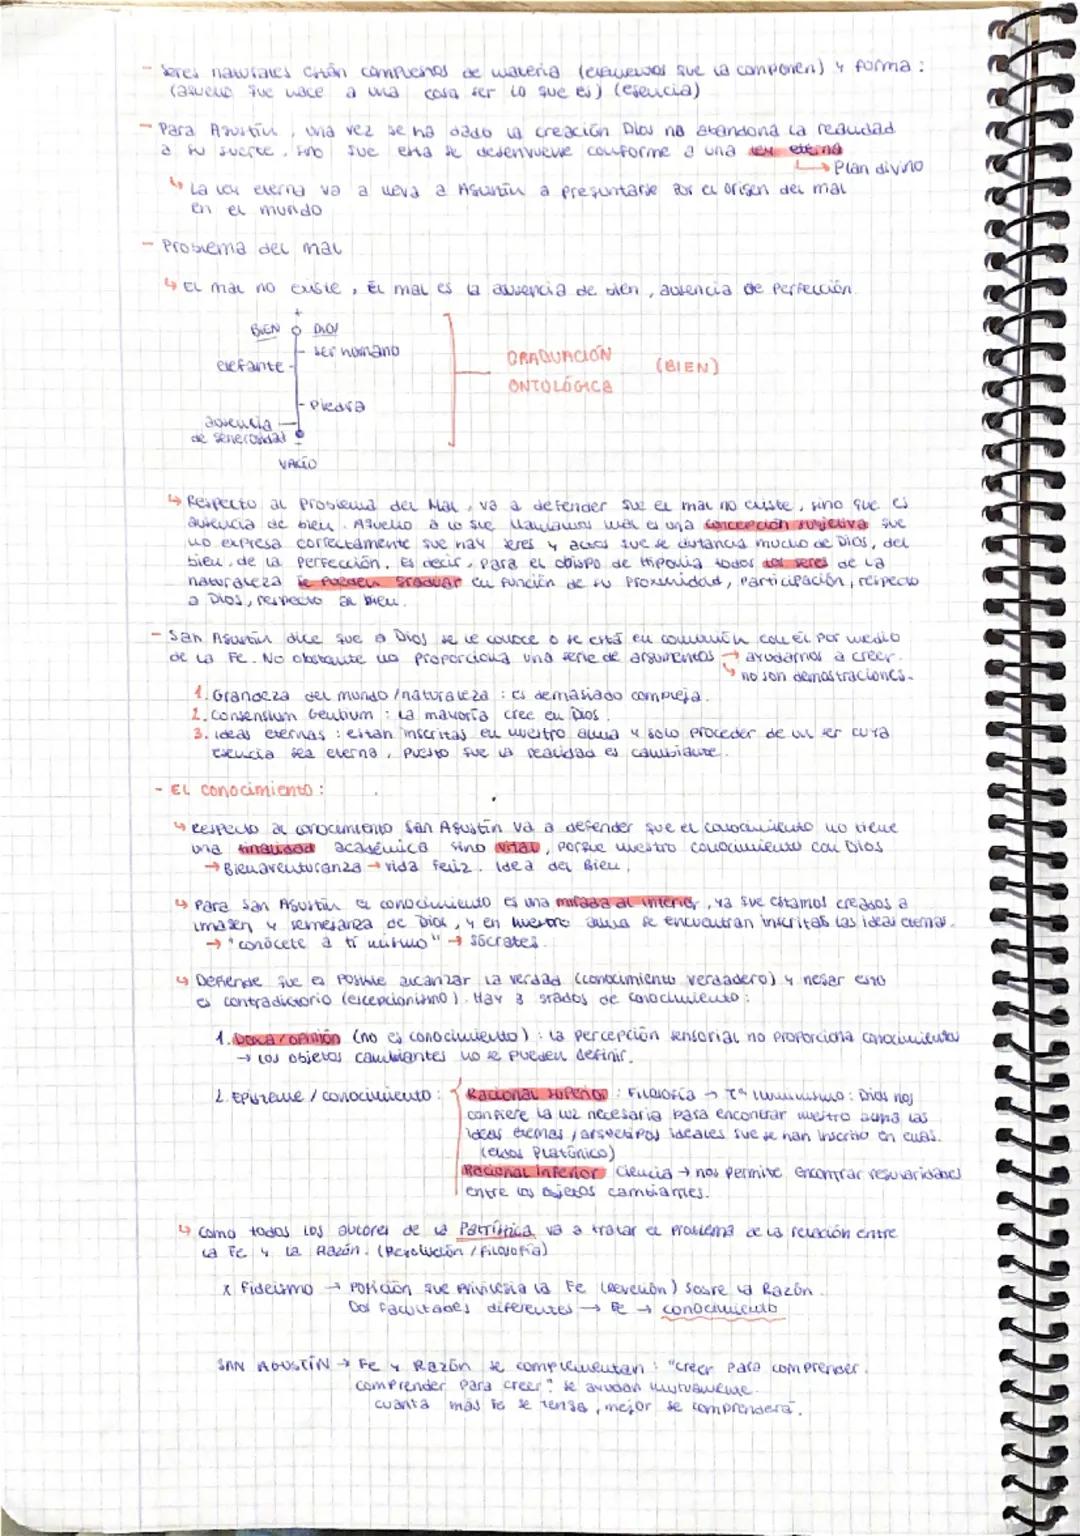 - Seres naturales están compuestos de materia (elementos que la componen) y forma:
(aquello que hace a una cosa ser lo que es) (esencia)
- Para Agustín, una vez se ha dado la creación Dios no abandona la realidad
a su suerte, sino que esta se desenvuelve conforme a una ley eterna
↳ Plan divino
↳ La ley eterna va a lleva a Agustín a preguntarse por el origen del mal
en el mundo
- Problema del mal
↳ El mal no existe, El mal es la ausencia de bien, ausencia de perfección.
+
BIEN DIOS
ser humano
elefante
piedra
ausencia
de generosidad
-
VACÍO
GRADUACIÓN (BIEN)
ONTOLÓGICA
↳ Respecto al problema del Mal, va a defender que el mal no existe, sino que es
ausencia de bien. Aquello a lo que llamamos mal es una concepción subjetiva que
no expresa correctamente que hay seres y actos que se distancia mucho de Dios, del
bien, de la perfección. Es decir, para el obispo de Hiponia todos los seres de la
naturaleza se pueden graduar en función de su proximidad, participación, respecto
a Dios, respecto al bien.
- San Agustín dice que a Dios se le conoce o se está en comunión con él por medio
de la Fe. No obstante no proporciona una serie de argumentos → ayudarnos a creer.
↳ no son demostraciones.
1. Grandeza del mundo/naturaleza: es demasiado compleja.
2. Consensium Gentium: La mayoría cree en Dios.
3. ideas eternas: estan inscritas en nuestro alma y solo proceder de un ser cuya
esencia sea eterna, puesto que la realidad es cambiante.
- El conocimiento:
↳ Respecto al conocimiento San Agustín va a defender que el conocimiento no tiene
una finalidad académica sino vital, porque nuestro conocimiento con Dios
→ Bienaventuranza → vida feliz. Idea del Bien.
↳ Para San Agustín el conocimiento es una mirada al interior, ya que estamos creados a
imagen y semejanza de Dios, y en nuestro alma se encuentran inscritas las ideas eternas.
→ "conócete a tí mismo" → Sócrates.
↳ Defiende que es posible alcanzar la verdad (conocimiento verdadero) y negar esto
es contradictorio (escepcionismo). Hay 3 grados de conocimiento:
1. Doxa/opinión (no es conocimiento): la percepción sensorial no proporciona conocimiento
→ Los objetos cambiantes no se pueden definir.
2. Episteme/conocimiento: Racional superior: Filosofía → Tª Iluminismo: Dios nos
confiere la luz necesaria para encontrar nuestro alma las
ideas eternas/arquetipos ideales que se han inscrito en ellas.
(eidos platónico)
Racional inferior Ciencia → nos permite encontrar regularidades
entre los objetos cambiantes.
↳ Como todos los autores de la Patrística va a tratar el problema de la relación entre
la Fe y la Razón. (Revolución/Filosofía)
x Fideísmo → Posición que privilegia la Fe (reveción) sobre la Razón.
Dos facultades diferentes → Fe → conocimiento
SAN AGUSTÍN → Fe y Razón se complementan: "creer para comprender.
comprender para creer": se ayudan mutuamente.
cuanta más fe se tenga, mejor se comprenderá.